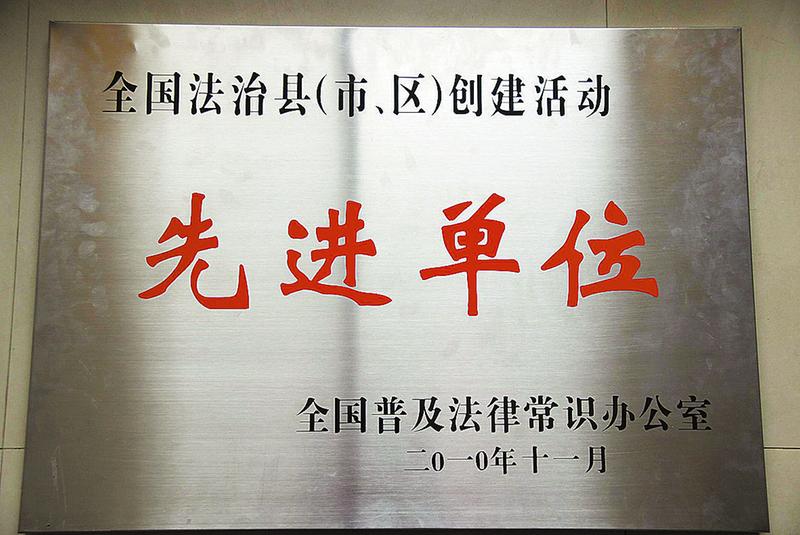 全国法治县(市、区)创建活动
先进单位
全国普及法律常识办公室
二0一0年十一月